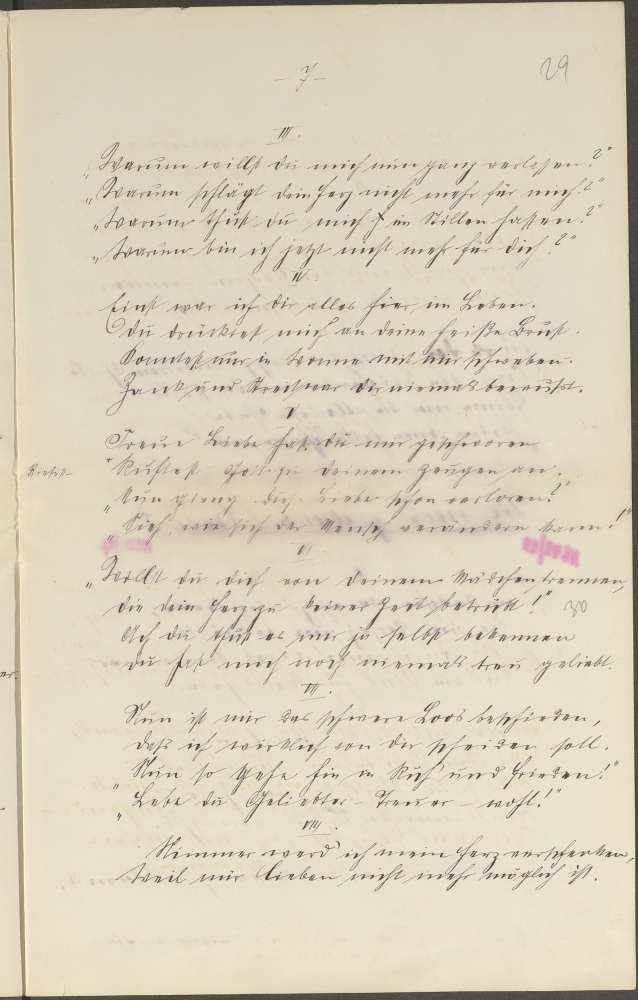 - 7 -
29
III.
„Warum willst du mich nun ganz verlassen?"
„Warum schlägt dein Herz nicht mehr für mich?"
„Warum thust du mich im Stillen hassen?"
„Warum bin ich jetzt nicht mehr für dich?"
IV
Einst war ich dir alles hier im Leben.
Du drücktest mich an deine heiße Brust.
Konntest nur in Wonne mit mir schweben.
Zank und Streit war dir niemals bewußt.
V
Treue Liebe hast du mir geschworen
Riefst
"Ruftest Gott zu deinem Zeugen an.
„Nun gieng diese Liebe schon verloren?"
„Sieh, wie sich der Mensch verändern kann!"
VI
„Willst du dich von deinem Mädchen trennen,
die dein Herz zu keiner Zeit betrübt!"
30
Ach du thust es mir ja selbst bekennen
du hast mich noch niemals treu geliebt.
VII.
Nun ist mir das schwere Loos beschieden,
daß ich wirklich von dir scheiden soll.
„Nun so gehe hin in Ruh' und Frieden!"
„Lebe du Geliebter - Treuer - wohl!"
VIII.
Nimmer werd' ich mein Herz verschenken,
Weil mir Lieben nicht mehr möglich ist.